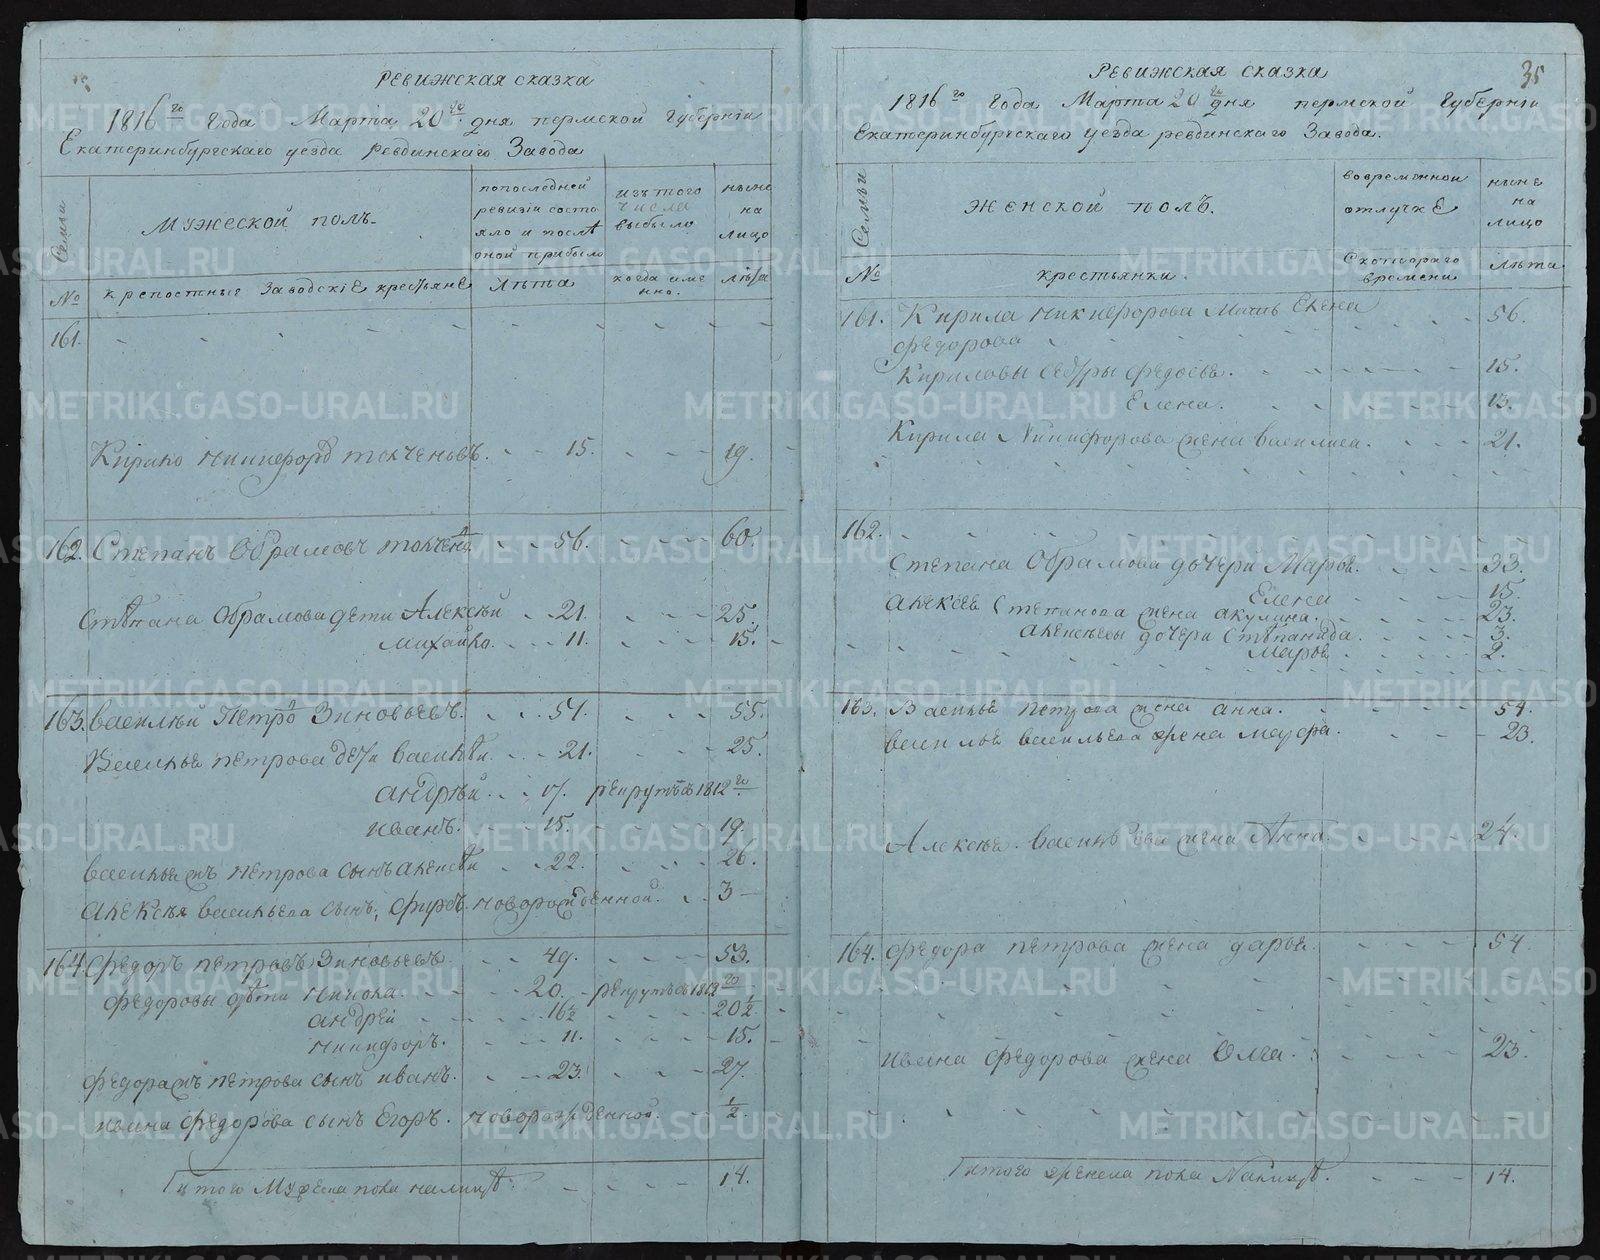 Ревижская сказка
1816го года Марта 20го дня пермской губернїи
Екатеринбургскаго уезда ревдинскаго Завода
Семьи
мужеской полъ
попоследней ревизїи состояло и послѣ оной прибыло
изътого числа выбыло
ныне на лицо
№
крепостные Заводскiе крестьяне
Лѣта
когда имено.
лѣта
161.
Кирило никифоръ токченовъ. 15. 19.
162. Степанъ Обрамовъ 56. 60.
Степана Обрамова дети Алексѣй 21. 25.
михайло. 11. 15.
163. василѣй Петро Зиновьевъ. 51. 55.
Василья петрова дети василѣй. 21. 25.
андрѣй. 17. рекрутъ в 1812го
иванъ. 15. 19.
васильемъ петрова сынъ алексѣй 22. 26.
алексѣя васильева сынъ новорожденной. 3
164. Федоръ петровъ Зиновьевъ 49. 53.
Федоровы дѣти Никола 20. рекрутъ в 1812го
андрей 16½ 20½
никифоръ. 11. 15.
петрова сынъ иванъ. 23. 27.
ивана Федорова сынъ Егоръ. новорожденной. ½.
итого Мужеска пола налицѣ. 14.
35
Ревижская сказка
1816го года Марта 20го дня пермской губернїи
Екатеринбургскаго уезда ревдинскаго Завода.
Семьи
женской полъ.
вовременной отлучкѣ
ныне на лицо
№
крестьянки.
Скотораго времени
лѣта
161. Кирила никифорова Мать Елена 56.
федорова
Кириловы сестры федосья. 15.
Елена. 13.
Кирила Никифорова жена василиса. 21.
162.
Степана Обрамова дочери Марья. 33.
Елена 15.
алексея Степанова жена акулина. 23.
алексѣевы дочери Степанида. 3.
Марья 2.
163. Василья петрова жена анна. 54.
василья васильева жена марфа. 23.
Алексѣя васильева жена Анна. 24.
164. Федора петрова жена дарья. 54
ивана Федорова жена Олга. 23.
итого женска пола Налицѣ. 14.
METRIKI.GASO-URAL.RU